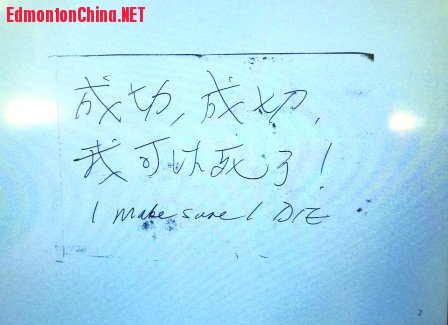 EdmontonChina.NET
成功,成功,
我可以死了!
I make sure I DIE
2